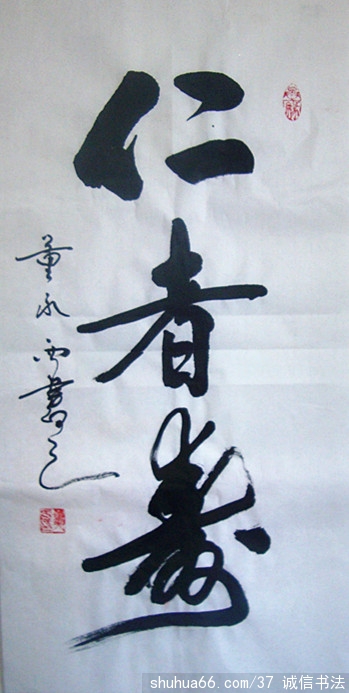 仁者壽
董永西書之
shuhua66.com/37 诚信书法